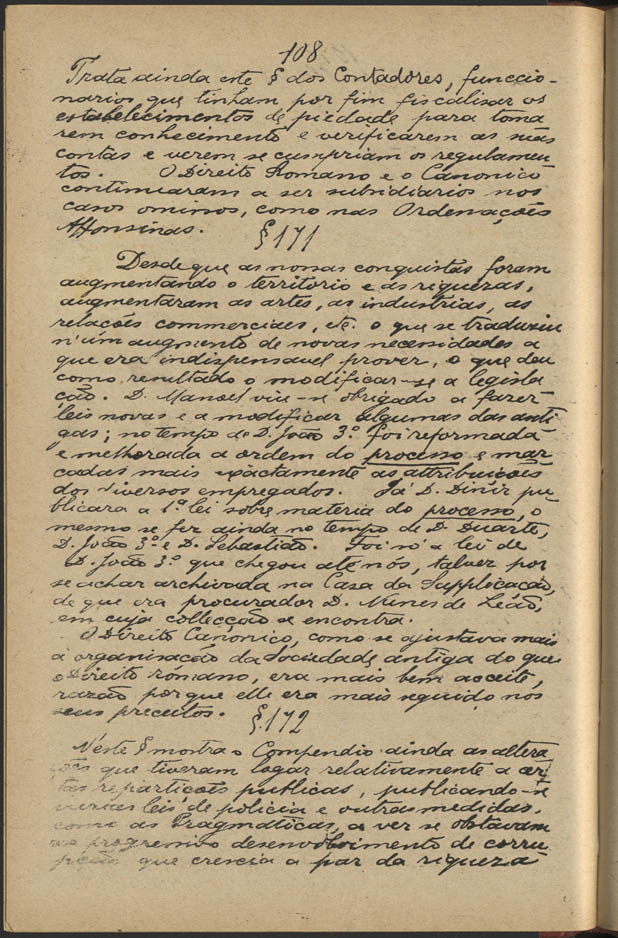 108
Trata ainda este § dos Contadores, funccio-
narios que tinham por fim fiscalisar os
estabelecimentos de piedade para toma
rem conhecimento e verificarem as suas
contas e verem se cumpriam os regulamen
tos. O Direito Romano e o Canonico
continuaram a ser subsidiarios nos
casos omissos, como nas Ordenações
Affonsinas.
§ 171
Desde que as nossas conquistas foram
augmentando o territorio e as riquezas,
augmentaram as artes, as industrias, as
relações commerciaes, etc. o que se traduziu
n'um augmento de novas necessidades a
que era indispensavel prover, o que deu
como resultado o modificar-se a legisla
ção. D. Manoel viu-se obrigado a fazer
leis novas e a modificar algumas das anti
gas; no tempo de D. João 3º foi reformada
e melhorada a ordem do processo e mar
cadas mais exactamente as attribuições
dos diversos empregados. Já D. Diniz pu
blicara a 1ª lei sobre materia do processo, o
mesmo se fez ainda no tempo de D. Duarte,
D. João 3º e D. Sebastião. Foi só a lei de
D. João 3º que chegou até nós, talvez por
se achar archivada na Casa da Supplicação,
de que era procurador D. Nunes de Leão,
em cuja collecção se encontra.
O Direito Canonico, como se ajustava mais
á organisação da Sociedade antiga do que
o Direito romano, era mais bem acceite,
razão porque elle era mais seguido nos
seus preceitos.
§ 172
N'este § mostra o Compendio ainda as altera
ções que tiveram logar relativamente a cer
tas repartições publicas, publicando-se
varias leis de policia e outras medidas,
como as Pragmaticas, a ver se obstavam
ao progressivo desenvolvimento de corru
pção que crescia a par da riqueza